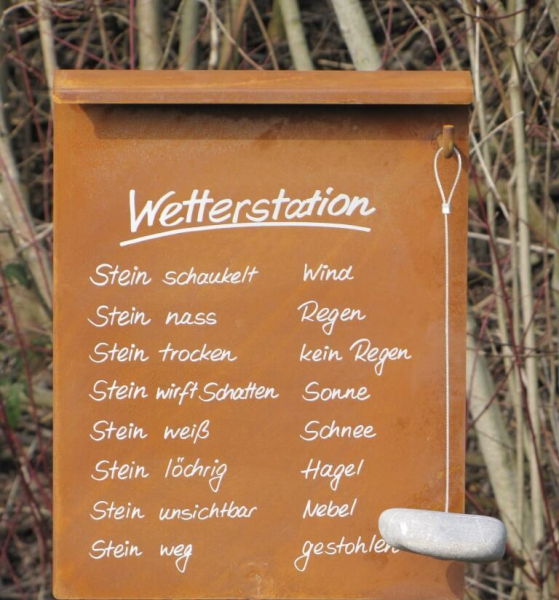 Wetterstation
Stein schaukelt Wind
Stein nass Regen
Stein trocken kein Regen
Stein wirft Schatten Sonne
Stein weiß Schnee
Stein löchrig Hagel
Stein unsichtbar Nebel
Stein weg gestohlen